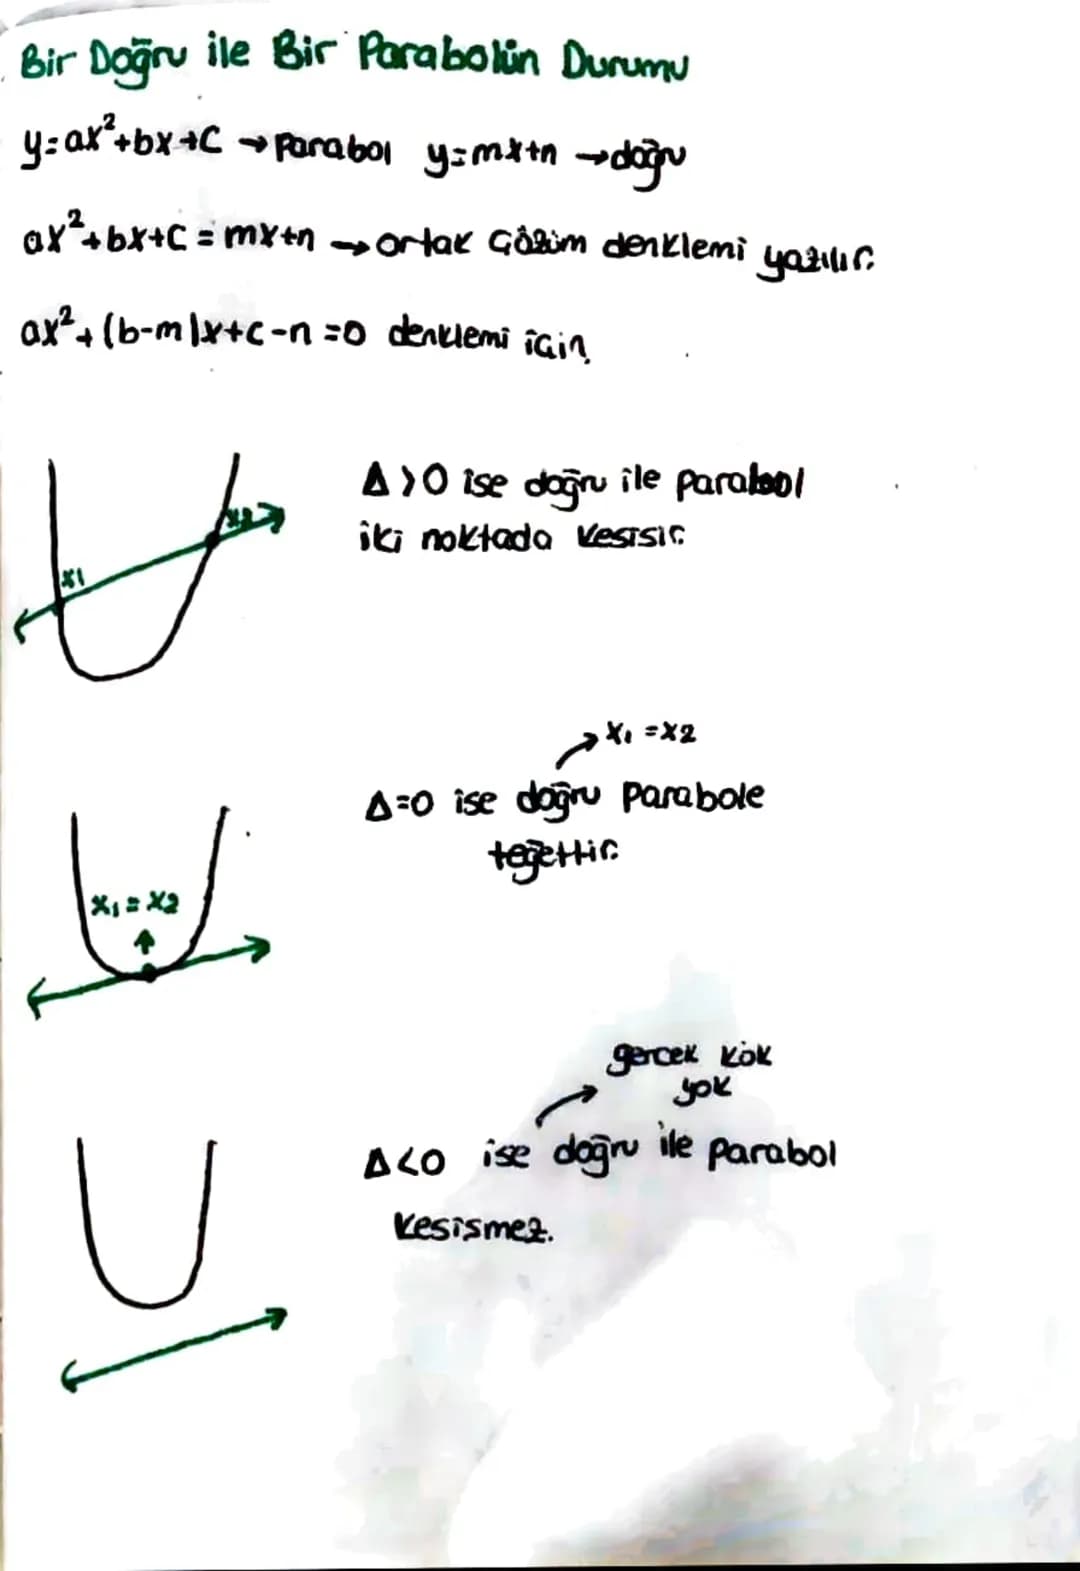 Bir Doğru ile Bir Parabolün Durumu
y=ax²+bx+C → Parabol y=mx+n → doğru
ax²+bx+C = mx+n → ortak Çözüm denklemi yazılır.
ax²+(b-m)x+c-n=0 denklemi için,
Δ>0 ise doğru ile parabol
iki noktada kesişir.
x1
x2
→ x₁ = x2
Δ=0 ise doğru parabole
teğettir.
x₁ = x2
gerçek kök
yok
Δ<0 ise doğru ile parabol
kesişmez.